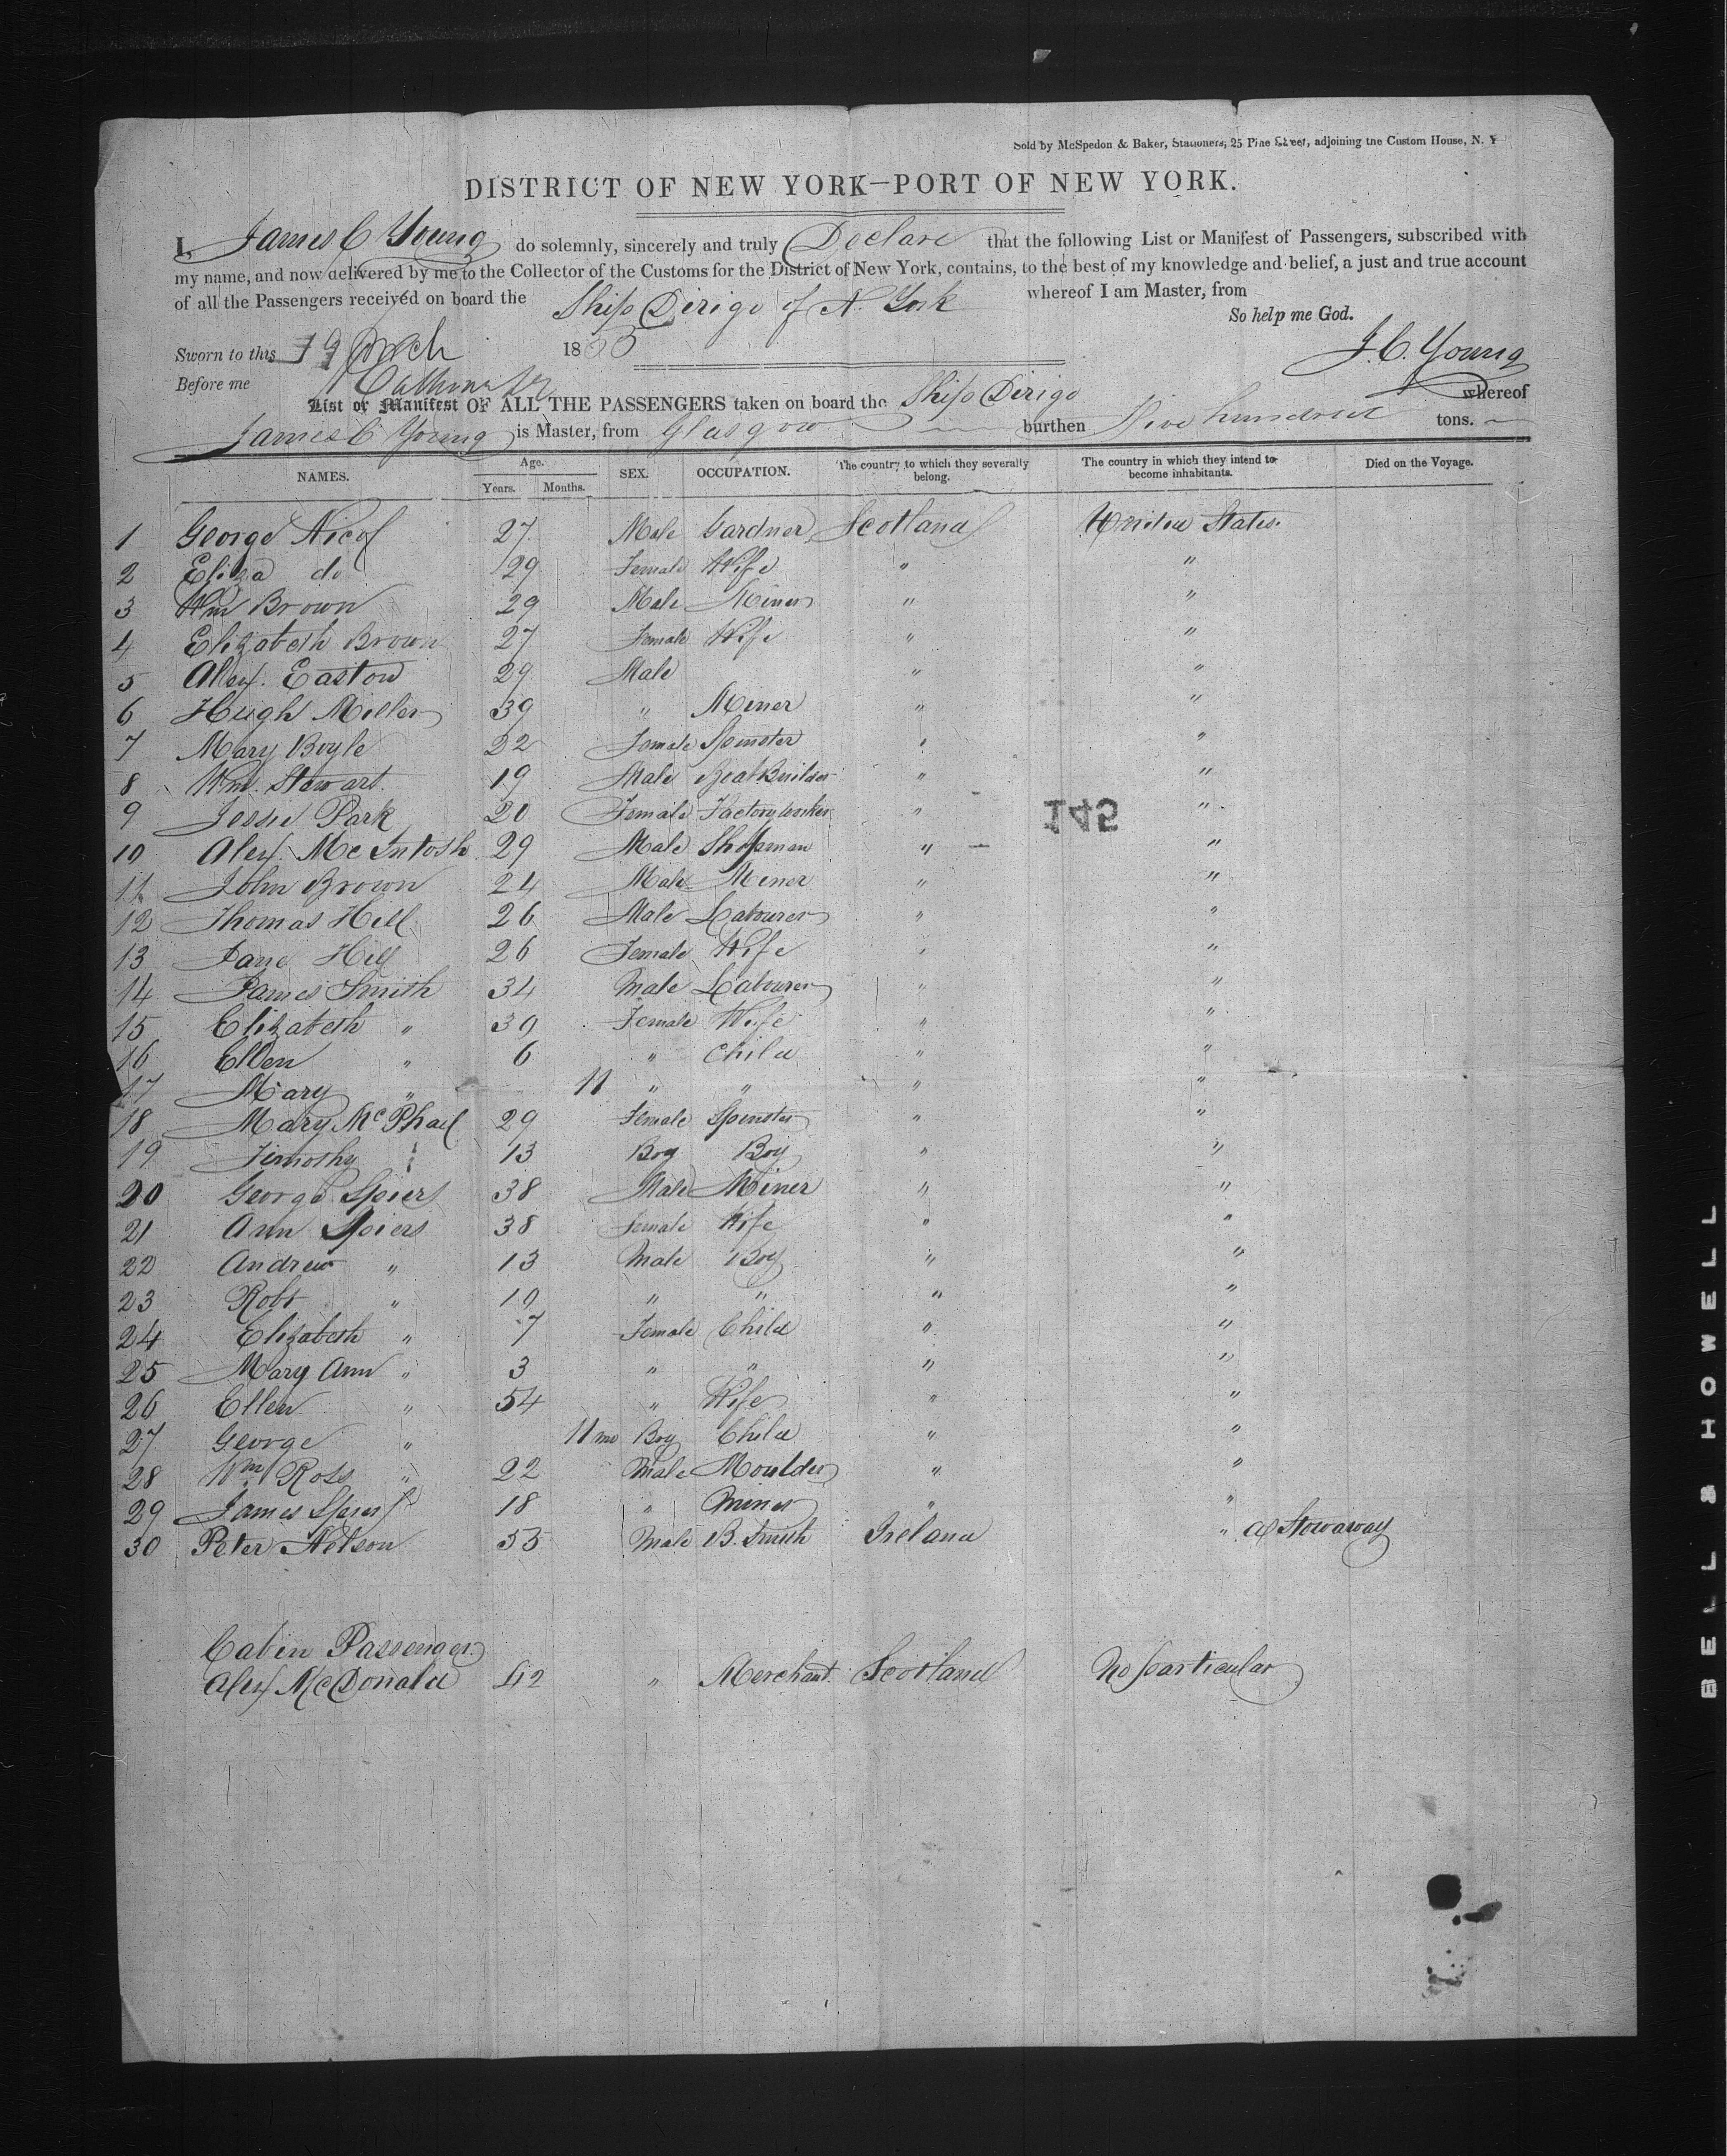 Sold by McSpedon & Baker, Stationers, 25 Pine Street, adjoining the Custom House, N. Y
DISTRICT OF NEW YORK—PORT OF NEW YORK.
I, James C Young do solemnly, sincerely and truly Declare that the following List or Manifest of Passengers, subscribed with
my name, and now delivered by me to the Collector of the Customs for the District of New York, contains, to the best of my knowledge and belief, a just and true account
of all the Passengers received on board the Ship Dirigo of N. York whereof I am Master, from
So help me God.
Sworn to this 19 Mch 1855
J. C. Young
Before me
List or Manifest OF ALL THE PASSENGERS taken on board the Ship Dirigo whereof
James C Young is Master, from Glasgow burthen Five hundred tons.
NAMES. Age. Years. Months. SEX. OCCUPATION. The country to which they severally belong. The country in which they intend to become inhabitants. Died on the Voyage.
1 George Nicol 27 Male Gardner Scotland United States.
2 Eliza do 29 Female Wife " "
3 Wm Brown 29 Male Miner " "
4 Elizabeth Brown 27 Female Wife " "
5 Alex. Easton 29 Male " "
6 Hugh Miller 39 " Miner " "
7 Mary Boyle 22 Female Spinster " "
8 Wm. Stewart. 19 Male Boat Builder " "
9 Jessie Park 20 Female Factory worker " "
145
10 Alex. McIntosh 29 Male Shopman " "
11 John Brown 24 Male Miner " "
12 Thomas Hill 26 Male Labourer " "
13 Jane Hill 26 Female Wife " "
14 James Smith 34 Male Labourer " "
15 Elizabeth " 39 Female Wife " "
16 Ellen " 6 " Child " "
17 Mary " 11 " " " "
18 Mary McPhail 29 Female Spinster " "
19 Timothy " 13 Boy Boy " "
20 George Spiers 38 Male Miner " "
21 Ann Spiers 38 Female Wife " "
22 Andrew " 13 Male Boy " "
23 Robt " 10 " " " "
24 Elizabeth " 7 Female Child " "
25 Mary Ann " 3 " " " "
26 Ellen " 54 " Wife " "
27 George " 11 mo Boy Child " "
28 Wm Ross " 22 Male Moulder " "
29 James Spiers 18 " Miner " "
30 Peter Nelson 55 Male B. Smith Ireland " a Stowaway
Cabin Passenger.
Alex McDonald 42 " Merchant. Scotland No particular
BELL & HOWELL